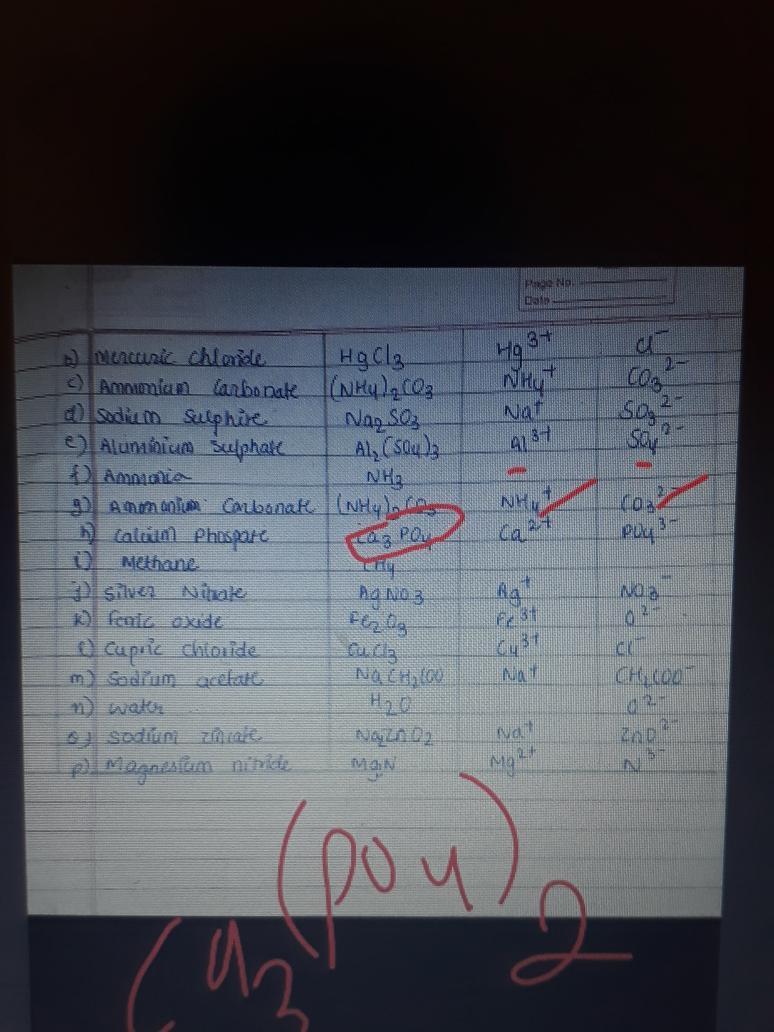 Page No.
Date
b) Mercuric chloride HgCl3 Hg3+ Cl-
c) Ammonium Carbonate (NH4)2CO3 NH4+ CO3 2-
d) Sodium Sulphite Na2SO3 Na+ SO3 2-
e) Aluminium Sulphate Al2(SO4)3 Al3+ SO4 2-
f) Ammonia NH3 - -
g) Ammonium Carbonate (NH4)2CO3 NH4+ CO3 2-
h) Calcium Phospate Ca3 PO4 Ca2+ PO4 3-
i) Methane CH4
j) Silver Nitrate AgNO3 Ag+ NO3-
k) Ferric oxide Fe2O3 Fe3+ O2-
l) Cupric chloride CuCl3 Cu3+ Cl-
m) Sodium acetate Na CH3COO Na+ CH3COO-
n) water H2O O2-
o) Sodium zincate Na2ZnO2 Na+ ZnO 2-
p) Magnesium nitride Mg2+ N3-
Ca3(PO4)2